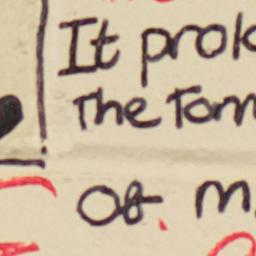 It prolo
The Tom
Of M